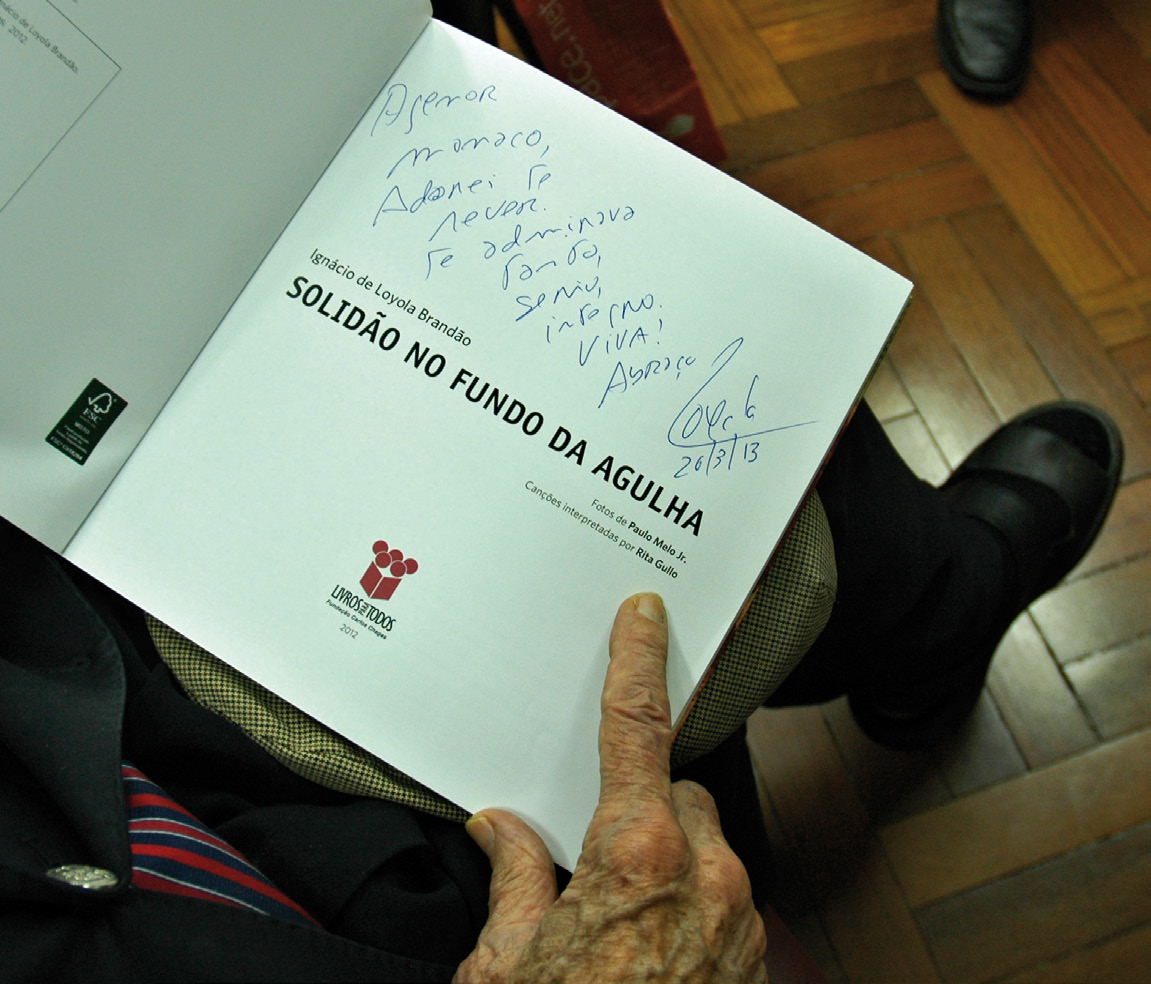 nácio de Loyola Brandão.
2012.
Agenor
monaco,
Adorei te
rever.
Te admirava
tanto,
sério,
íntegro.
VIVA!
Abraço
Loyola
20/3/13
Ignácio de Loyola Brandão
SOLIDÃO NO FUNDO DA AGULHA
Fotos de Paulo Melo Jr.
Canções interpretadas por Rita Gullo
LIVROS PARA TODOS
Fundação Carlos Chagas
2012
FSC
MISTO
ace.net